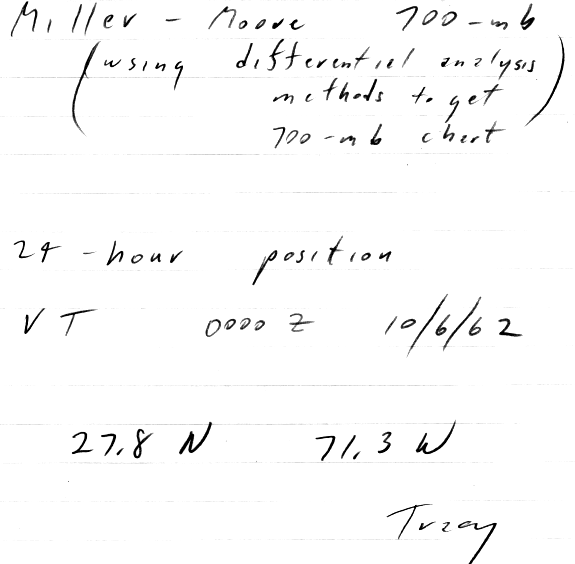 Miller - Moore 700-mb
(using differentiel analysis
methods to get
700-mb chart)
24-hour position
VT 0000 Z 10/6/62
27.8 N 71.3 W